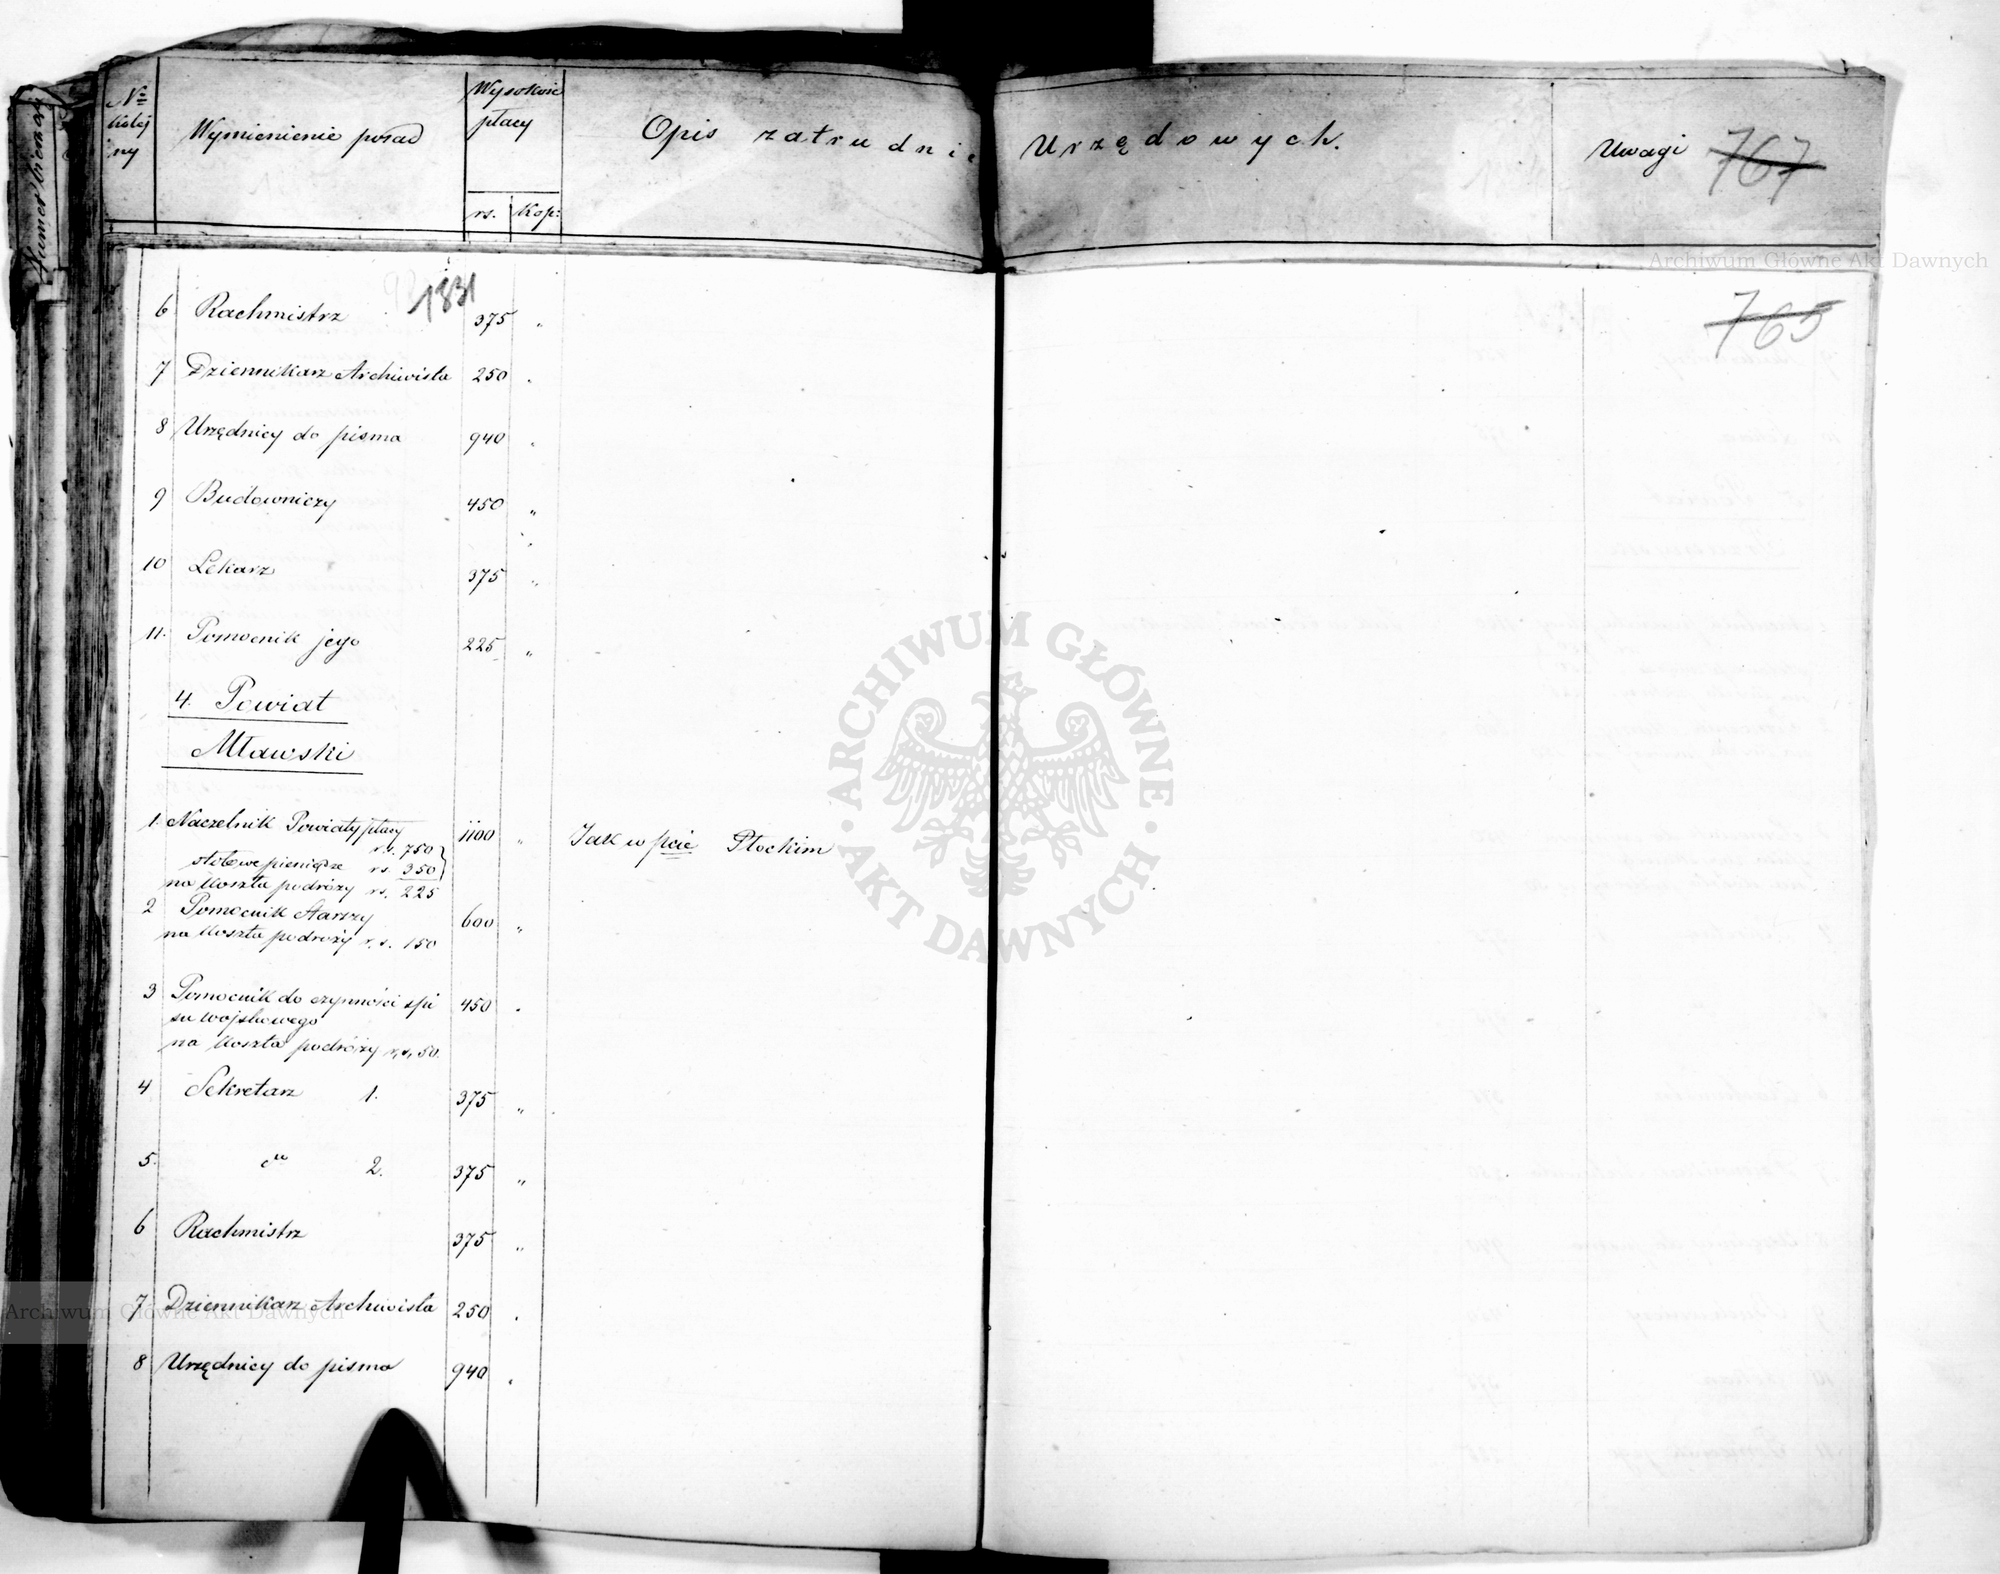 Numer bieżący
No kolej ny
Wymienienie posad
Wysokość płacy
rs. Kop:
Opis zatrudnie Urzędowych.
Uwagi
767
765
1831
6 Rachmistrz 375 "
7 Dziennikarz Archiwista 250 "
8 Urzędnicy do pisma 940 "
9 Budowniczy 450 "
10 Lekarz 375 "
11. Pomocnik jego 225 "
4. Powiat
Mławski
1. Naczelnik Powiatu płacy 1100 " Jak w pcie Płockim
r.s. 750
stołowe pieniądze rs. 350
na koszta podróży rs. 225
2 Pomocnik Starszy 600 "
na koszta podróży r.s. 150
3 Pomocnik do czynności spi 450 "
su wojskowego
na koszta podróży r.s. 50.
4 Sekretarz 1. 375 "
5. do 2. 375 "
6 Rachmistrz 375 "
7 Dziennikarz Archiwista 250 "
8 Urzędnicy do pisma 940 "
ARCHIWUM GŁÓWNE
AKT DAWNYCH
Archiwum Główne Akt Dawnych
Archiwum Główne Akt Dawnych